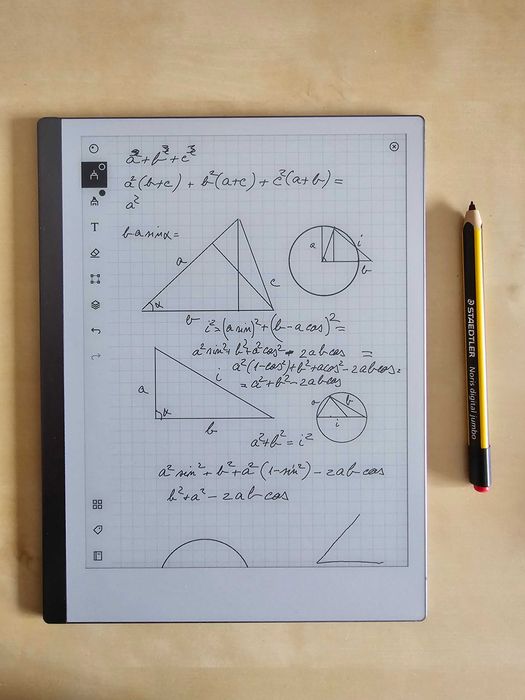 a³ + b³ + c³
a²(b+c) + b²(a+c) + c²(a+b) =
a²
b a sin α =
a
α
b
c
a
i
b
i² = (a sin)² + (b - a cos)² =
a² sin² + b² + a² cos² - 2ab cos =
a²(1-cos²) + b² + a cos² - 2ab cos =
= a² + b² - 2ab cos
a
i
α
b
a
b
i
a² + b² = i²
a² sin² + b² + a²(1 - sin²) - 2ab cos
b² + a² - 2ab cos
T
STAEDTLER
Noris digital jumbo